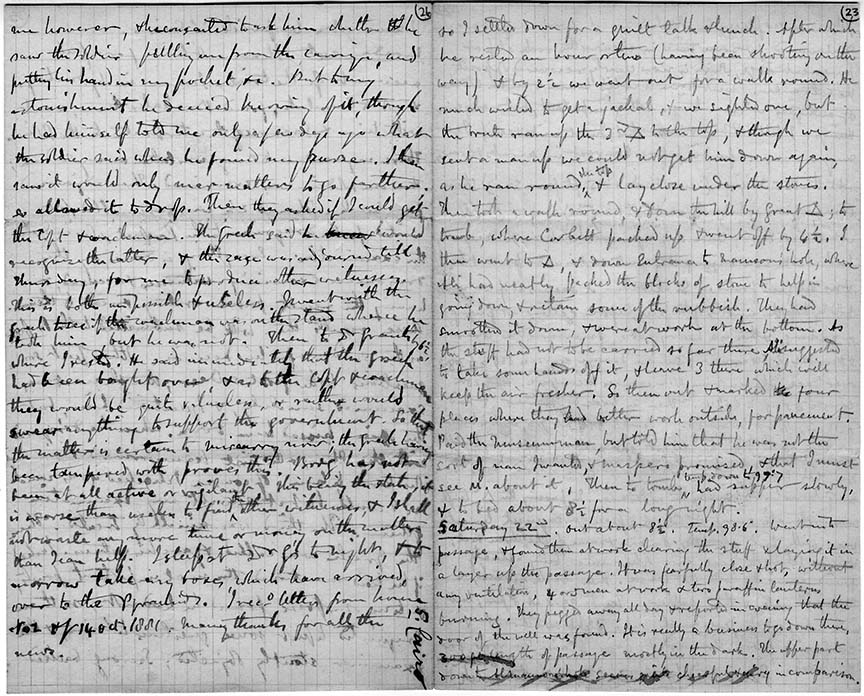 26
me however, & consented to ask him whether he
saw the soldier pulling me from the carriage, and
putting his hand in my pocket &c. But to my
astonishment he denied knowing of it, though
he had himself told me only a few days ago what
the soldier said when he found my purse. I
saw it would only mar matters to go further,
so allowed it to drop. Then they asked if I could get
the Copt & coachman. The Greek said he would
recognise the latter, & the case was adjourned till
Thursday, for me to produce other witnesses.
This is both impossible & useless. I went with the
Greek to see if the coachman was on the stand where he
took him, but he was not. Then to Dr Grant's by 6½
where I rested. He said immediately that the Greek
had been bought over & as to the Copt & coachman
they would be quite valueless, or rather would
swear anything to support the government. So
the matter is certain to miscarry now, the Greek having
been tampered with proves this. Borg has not
been at all active or vigilant. This being the state, it
is worse than useless to find other witnesses, & I shall
not waste any more time or money on the matter
than I can help. I sleep at Dr G's to night, & to
morrow take my boxes which have arrived,
over to the Pyramids. I recd letter from home,
No 2 of 14 Oct. 1881. Many thanks for all the
news.
23
so I settled down for a quiet talk & lunch. After which
he rested an hour or two (having been shooting on the
way) & by 2½ we went out for a walk round. He
much wished to get a jackal, & we sighted one, but
the brute ran up the 3rd Δ to the top, & though we
sent a man up we could not get him down again,
as he ran round the top & lay close under the stones.
Then took a walk round, & down the hill by Great Δ, to
tomb, where Corbett packed up & went off by 4½. I
then went to Δ, & down Entrance to Mamouns hole, where
Ali had neatly packed the blocks of stone to help in
going down, & retain some of the rubbish. They had
smoothed it down, & were at work at the bottom. As
the stuff had not to be carried so far there Ali suggested
to take some hands off it, & leave 3 there which will
keep the air fresher. So then out & marked four
places where they had better work outside, for pavement.
Paid the Museum man, but told him that he was not the
sort of man I wanted, & Maspero promised, & that I must
see M. about it. Then to tomb, had supper slowly,
& to bed about 8½ for a long night.
Saturday 22nd. out about 8½. Temp. 98·6°. went into
passage, & found them at work clearing the stuff & laying it in
a layer up the passage. It was fearfully close & hot, without
any ventilation, 4 or 5 men at work & two paraffin lanterns
burning. They pegged away all day & reported in evening that the
door of the well was found. It is really a business to go down there,
length of passage mostly in the dark. The upper part
down to Mamouns hole seems quite in comparison.